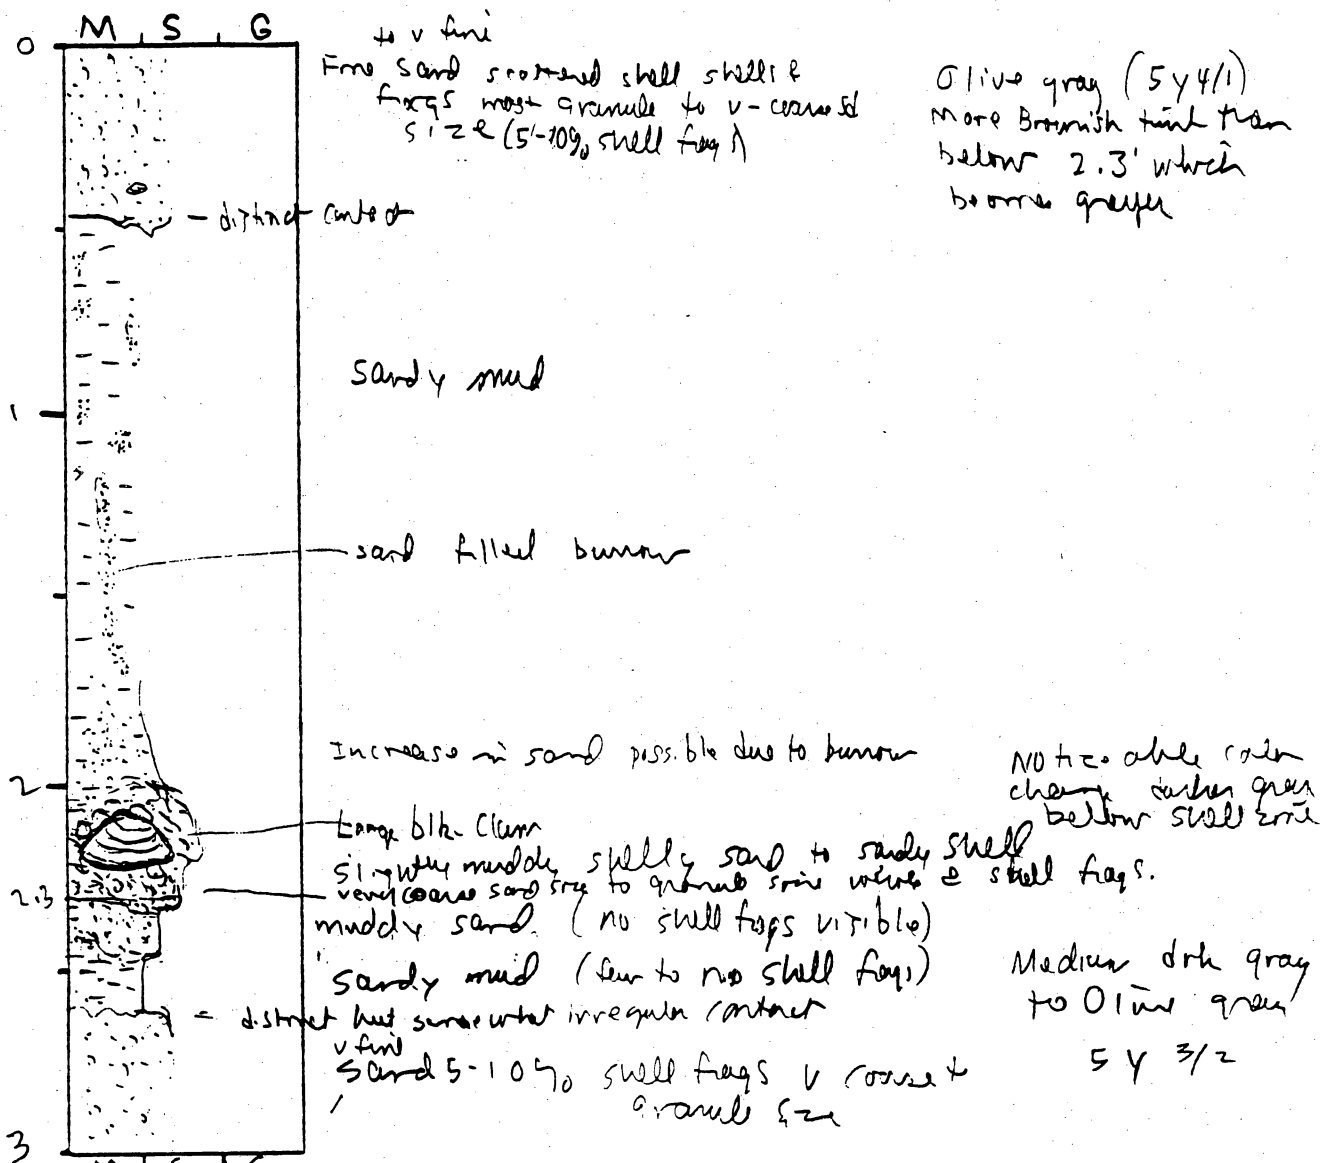 M S G
0
to v fine
Fine Sand scattered shell shells &
frags most granule to v-coarse sd
size (5-10% shell frag)
Olive gray (5Y4/1)
More Brownish tint than
below 2.3' which
becomes grayer
- distinct contact
Sandy mud
1
sand filled burrow
Increase in sand possible due to burrow
Noticeable color
change darker gray
below shell zone
2
Large blk. Clam
Slightly muddy shelly sand to sandy shell
very coarse sand size to granule some valves & shell frags.
2.3
muddy sand. (no shell frags visible)
Sandy mud (few to no shell frags)
Medium drk gray
to Olive gray
5 Y 3/2
= distinct but somewhat irregular contact
v fine
Sand 5-10% shell frags v coarse to
granule size
3